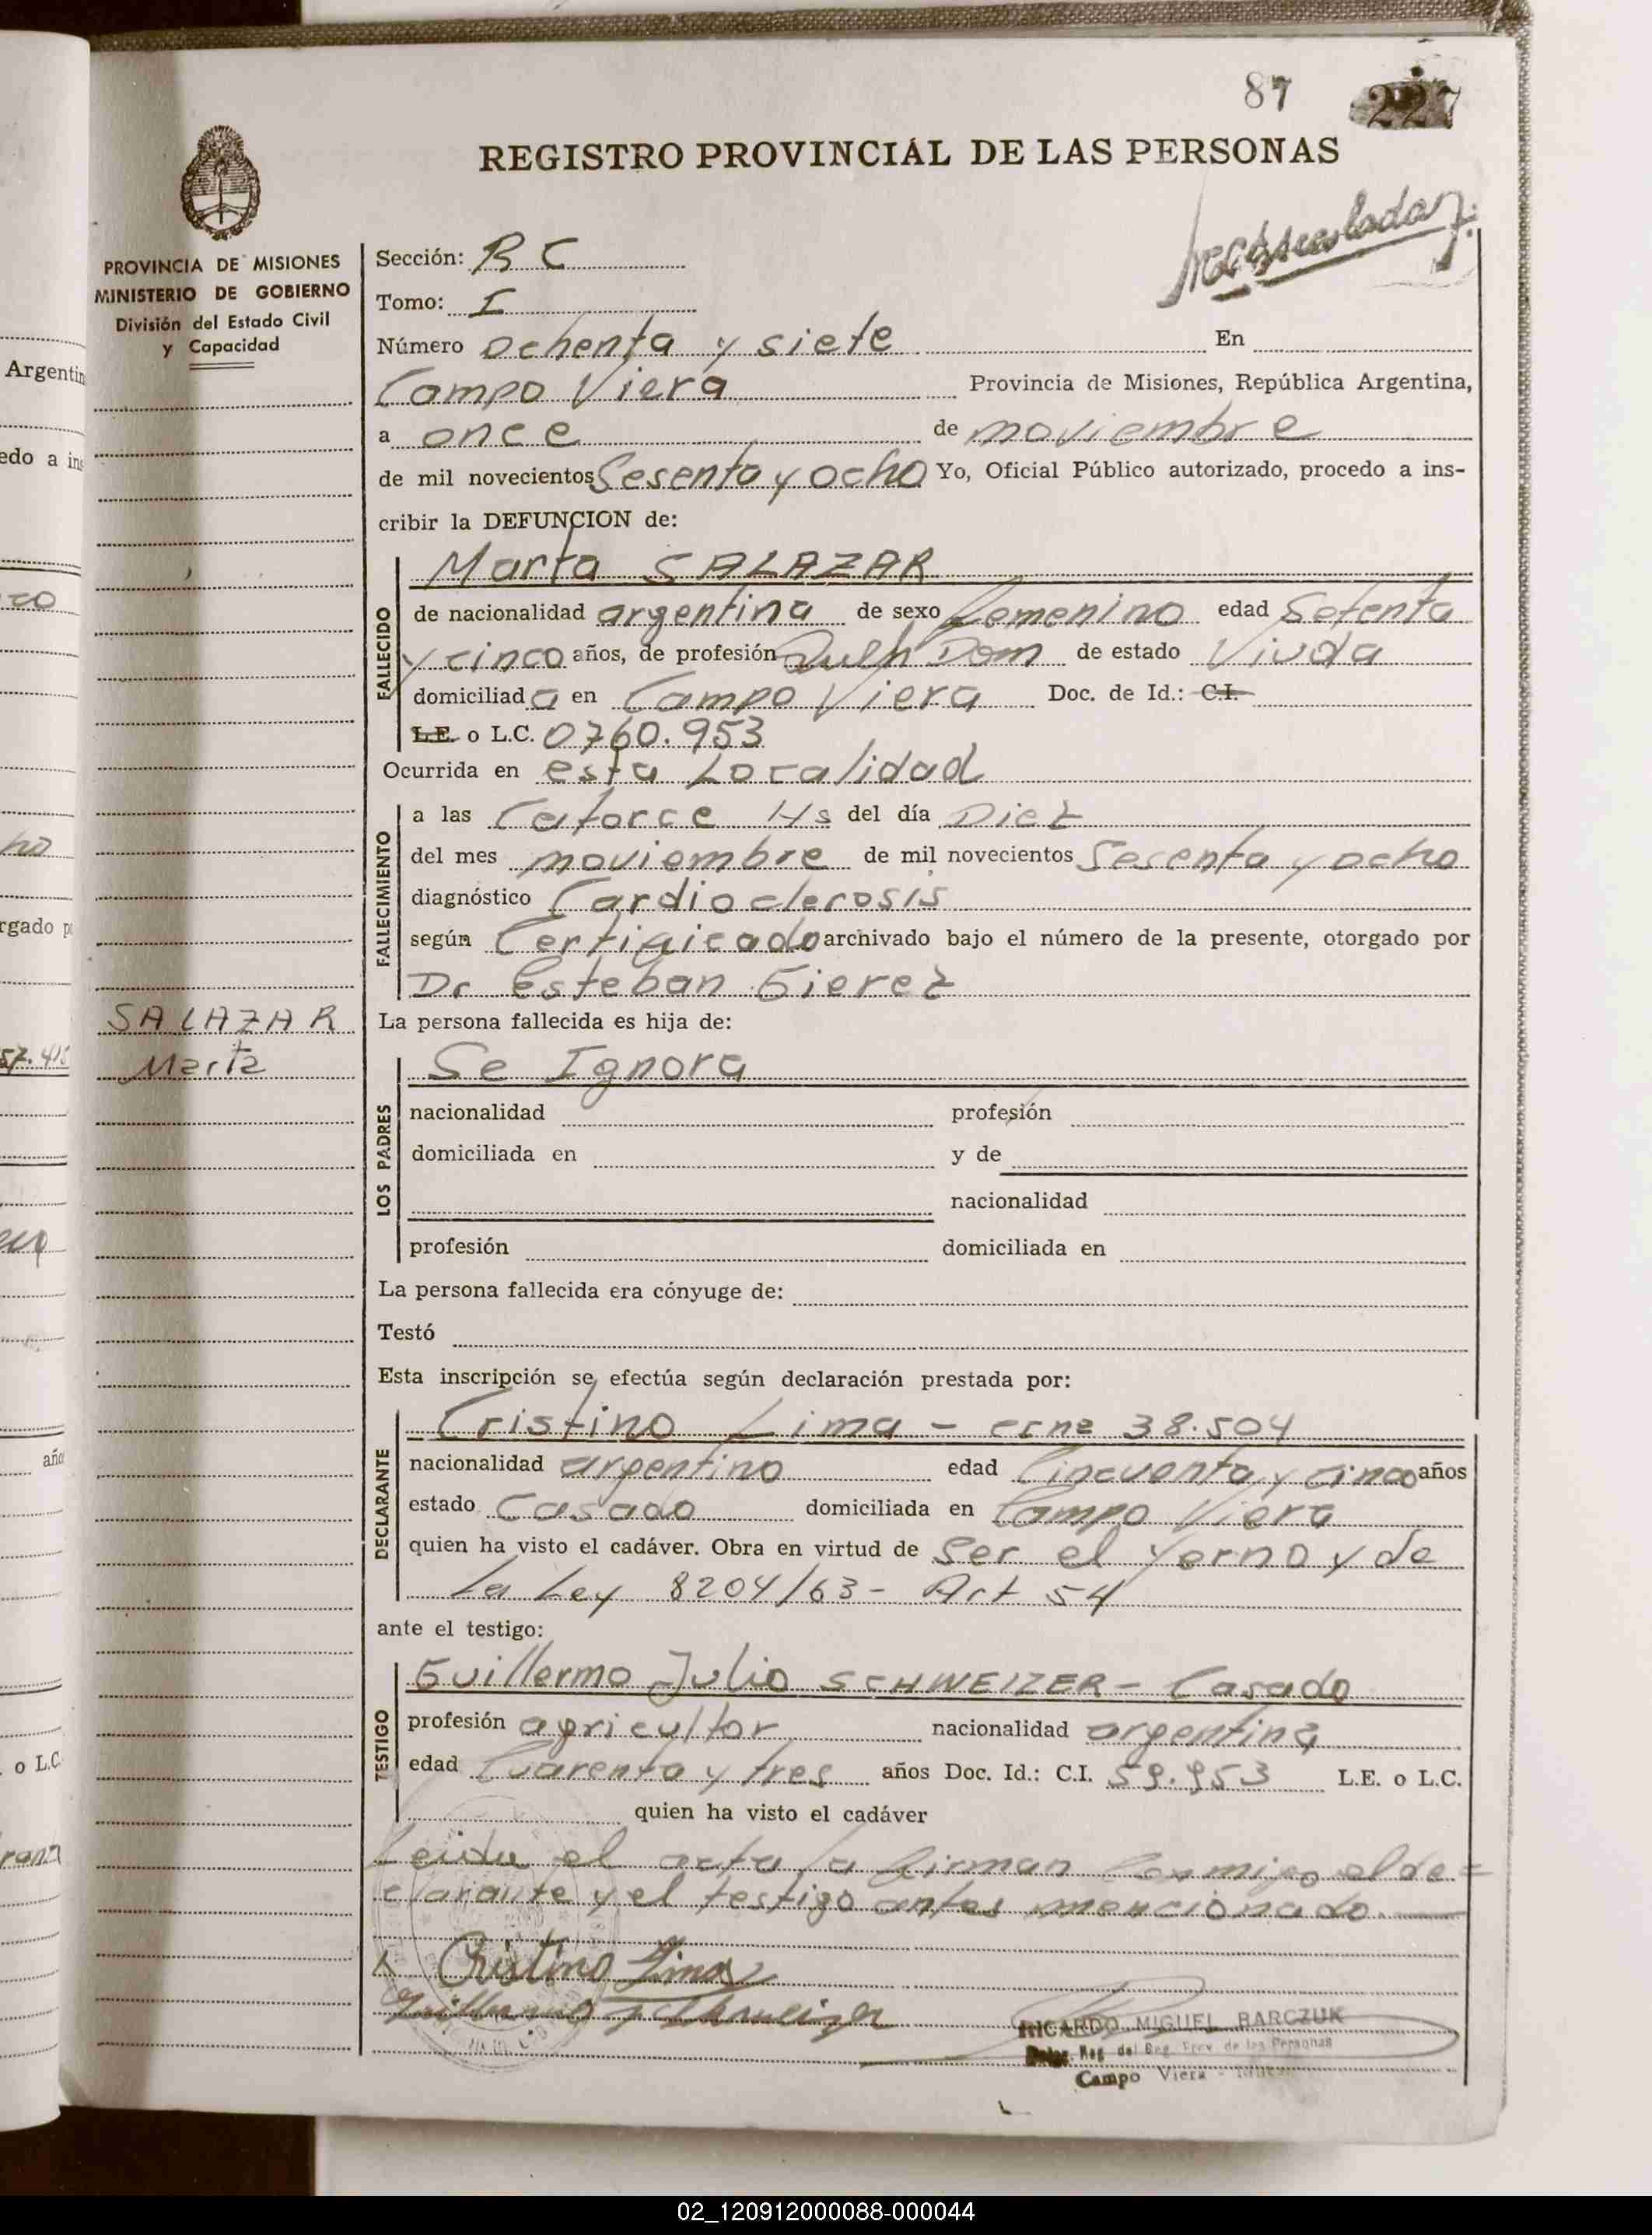 87 227
REGISTRO PROVINCIAL DE LAS PERSONAS
PROVINCIA DE MISIONES
MINISTERIO DE GOBIERNO
División del Estado Civil
y Capacidad
Sección: R C
Tomo: I
Número Ochenta y siete En
Campo Viera Provincia de Misiones, República Argentina,
a once de moviembre
de mil novecientos Sesenta y ocho Yo, Oficial Público autorizado, procedo a ins-
cribir la DEFUNCION de:
Marta SALAZAR
FALLECIDO
de nacionalidad argentina de sexo femenino edad Setenta
y cinco años, de profesión Dom de estado Viuda
domiciliada en Campo Viera Doc. de Id.: C.I.
L.E. o L.C. 0760.953
Ocurrida en esta Localidad
FALLECIMIENTO
a las Catorce Hs del día Diez
del mes moviembre de mil novecientos Sesenta y ocho
diagnóstico Cardioclerosis
según Certificado archivado bajo el número de la presente, otorgado por
Dr Esteban Gierez
SALAZAR
Marta
La persona fallecida es hija de:
LOS PADRES
Se Ignora
nacionalidad profesión
domiciliada en y de
nacionalidad
profesión domiciliada en
La persona fallecida era cónyuge de:
Testó
Esta inscripción se efectúa según declaración prestada por:
DECLARANTE
Cristino Lima - 38.504
nacionalidad argentino edad Cincuenta y cinco años
estado Casado domiciliada en Campo Viera
quien ha visto el cadáver. Obra en virtud de Ser el yerno y de
La Ley 8204/63- Art 54
ante el testigo:
TESTIGO
Guillermo Julio SCHWEIZER - Casado
profesión agricultor nacionalidad argentina
edad Cuarenta y tres años Doc. Id.: C.I. 59.953 L.E. o L.C.
quien ha visto el cadáver
Leida el acta la firman conmigo el de=
clarante y el testigo antes mencionado.
Cristino Lima
RICARDO MIGUEL BARCZUK
Reg. del Reg. Prov. de las Personas
Campo Viera -
Argentin
edo a ins
rgado p
57.
año
o L.C.
02_120912000088-000044